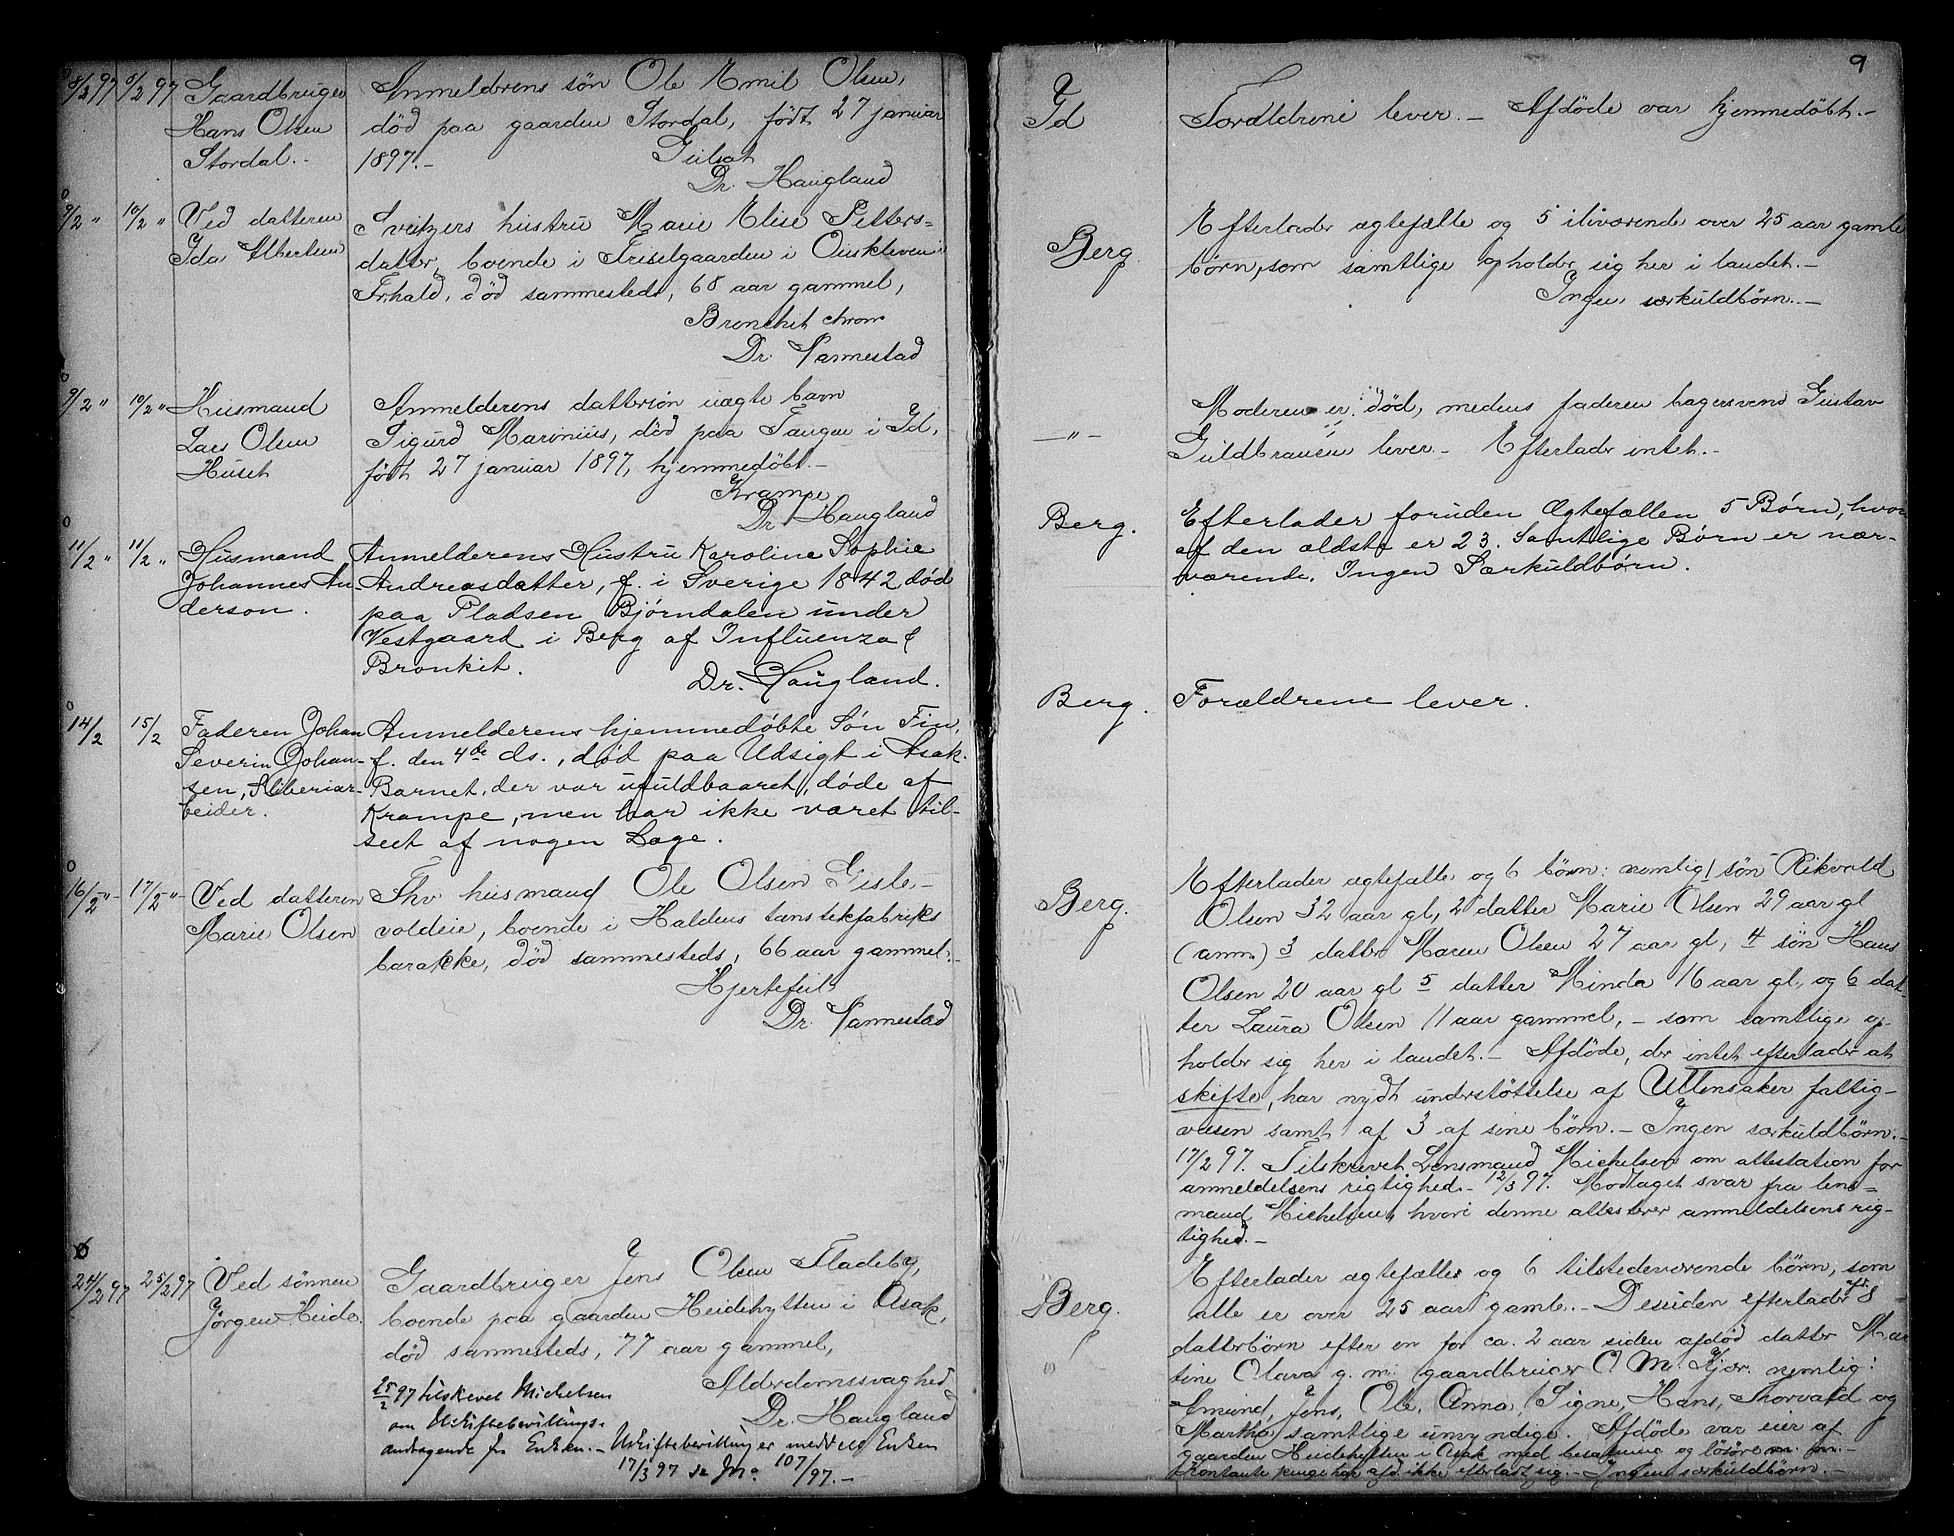 8/2 97 8/2 97 Gaardbruger Anmelderens søn Ole Emil Olsen,
Hans Olsen død paa gaarden Stordal, født 27 januar
Stordal.- 1897.- Gulsot
Dr. Haugland
9/2 " 10/2 " Ved datteren Sveitzers hustru Marie Elise Petters-
Ida Albertsen datter, boende i Friselgaarden i
Frhald, død sammesteds, 68 aar gammel,
Bronchit chron
Dr. Varmestad
9/2 " 10/2 " Husmand Anmelderens dattersøn uægte barn
Lars Olsen Sigurd Marinius, død paa Tangen i Id,
Huset født 27 januar 1897, hjemmedøbt.-
Krampe
Dr. Haugland
11/2 " 11/2 " Husmand Anmelderens Hustru Karoline Sophie
Johannes An- Andreasdatter, f. i Sverige 1842 død
derson. paa Pladsen Bjørndalen under
Vestgaard i Berg af Influenza &
Bronkit.
Dr. Haugland.
14/2 15/2 Faderen Johan Anmelderens hjemmedøbte Søn Fin,
Severin Johan- f. den 4de ds., død paa Udsigt i Asak.
sen, Sliberiar- Barnet, der var ufuldbaaret, døde af
beider. Krampe, men har ikke været til-
seet af nogen Læge.
16/2 "- 17/2 "- Ved datteren Fhv husmand Ole Olsen Gisle-
Marie Olsen voldeie, boende i Haldens tænstikfabriks
barakke, død sammesteds, 66 aar gammel.-
Hjertefeil
Dr. Varmestad
24/2 97 25/2 97 Ved sønnen Gaardbruger Jens Olsen Fladeby,
Jørgen Heide. boende paa gaarden Heidehytten i Asak,
død sammesteds, 77 aar gammel,
Alderdomssvaghed
Dr. Haugland
25/2 97 tilskrevet Michelsen
om Uskiftebevillings-
andragende fra Enken.- Uskiftebevilling er meddelt Enken
17/3 97 se Jno 107/97.-
9
Id Forældrene lever.- Afdøde var hjemmedøbt.-
Berg. Efterlader ægtefælle og 5 iliværende over 25 aar gamle
børn, som samtlige opholder sig her i landet.-
Ingen særkuldbørn.-
-"- Moderen er død, medens faderen bagersvend Gustav
Guldbransen lever.- Efterlader intet.-
Berg. Efterlader foruden Ægtefællen 5 Børn, hvor
af den ældste er 23. Samtlige Børn er nær-
værende. Ingen Særkuldbørn.
Berg. Forældrene lever.
Berg. Efterlader ægtefælle og 6 børn: nemlig 1 søn Rikvald
Olsen 32 aar gl, 2 datter Marie Olsen 29 aar gl
(anm.) 3 datter Maren Olsen 27 aar gl, 4 søn Hans
Olsen 20 aar gl 5 datter Minda 16 aar gl, og 6 dat-
ter Laura Olsen 11 aar gammel, - som samtlige op-
holder sig her i landet.- Afdøde, der intet efterlader at
skifte, har nydt understøttelse af Ullensaker fattig-
væsen samt af 3 af sine børn.- Ingen særkuldbørn.-
17/2 97. Tilskrevet Lensmand Michelsen om attestation for
anmeldelsens rigtighed.- 12/3 97. Modtaget svar fra lens-
mand Michelsen, hvori denne attesterer anmeldelsens rig-
tighed.-
Berg. Efterlader ægtefælle og 6 tilstedeværende børn, som
alle er over 25 aar gamle.- Desuden efterlader afd. 8
datterbørn efter en for ca. 2 aar siden afdød datter Mar
tine Olava g. m. gaardbruger O. M. Kjær. nemlig:
Emund, Jens, Ole, Anna, Signe, Hans, Thorvald og
Martha samtlige umyndige. Afdøde var eier af
gaarden Heidehytten i Asak med besætning og løsøre m. m.-
Kontante penge har afd. ikke efterladt sig.- Ingen særkuldbørn.-